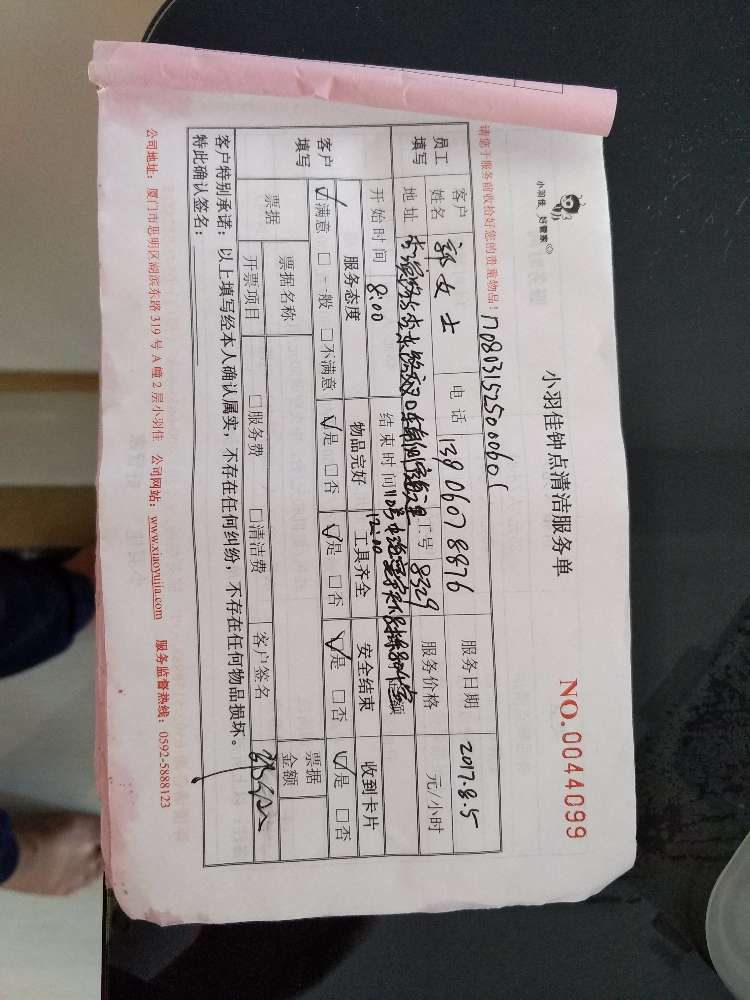 小羽佳 好管家
小羽佳钟点清洁服务单
NO.0044099
请您于服务前收拾好您的贵重物品!
170803152500060
员工填写 客户姓名 郭女士 电话 13906078876 服务日期 2017.8.5
地址 工号 8329 服务价格 元/小时
开始时间 8:00 结束时间 12:00
客户填写 服务态度 物品完好 工具齐全 安全结束 收到卡片
☑满意 □一般 □不满意 ☑是 □否 ☑是 □否 ☑是 □否 ☑是 □否
票据 票据名称 票据金额
开票项目 □服务费 □清洁费 客户签名
客户特别承诺:以上填写经本人确认属实,不存在任何纠纷,不存在任何物品损坏。
特此确认签名:
公司地址:厦门市思明区湖滨东路319号A幢2层小羽佳 公司网站:www.xiaoyujia.com 服务监督热线:0592-5888123